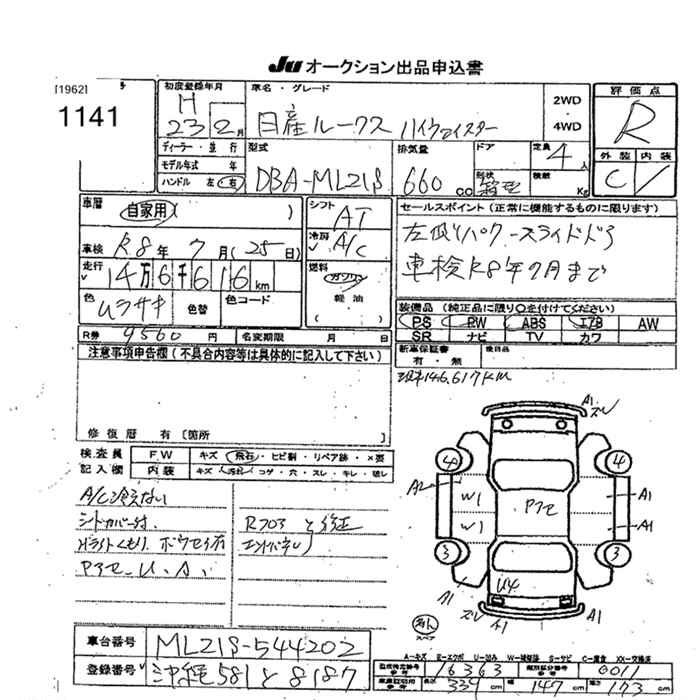 JU オークション出品申込書
[1962]
1141
初度登録年月
H
23年2月
車名・グレード
日産ルークス ハイウェイスター
2WD
・
4WD
評価点
R
外装 内装
C
ディーラー・並行
モデル年式 年
ハンドル 左・右
型式
DBA-ML21S
排気量
660cc
ドア
形状
定員
4人
積載
Kg
車歴
自家用( )
車検 R8年7月(25日)
走行
14万6千616km
色
ムラサキ
色替
色コード
シフト
AT
冷房
A/C
燃料
ガソリン
軽油
( )
セールスポイント(正常に機能するものに限ります)
左側パワースライドドア
車検R8年7月まで
装備品(純正品に限り○を付けてください)
PS PW ABS エアB AW
SR ナビ TV カワ
R券 9560円
名変期限 月 日
新車保証書
有・無
後日品
注意事項申告欄(不具合内容等は具体的に記入して下さい)
146,617KM
修復歴 有〔箇所 〕
検査員
記入欄
FW キズ・飛石・ヒビ割・リペア跡・×要
内装 キズ・汚れ・コゲ・穴・スレ・キレ・破レ
A/C冷えない
シートカバー付
R703 と修正
エンドパネル
Pアセ、U、A、
A1
ズレ
4
4
A2
W1
W1
Pアセ
A1
A1
3
3
A1
U4
A1
ズレ
A1
スペア
A-キズ E-エクボ U-凹み W-補修跡 S-サビ C-腐食 XX-交換済
車台番号 ML21S-544202
登録番号 沖縄 581 と 8187
16363
0011
334cm
147cm
163cm